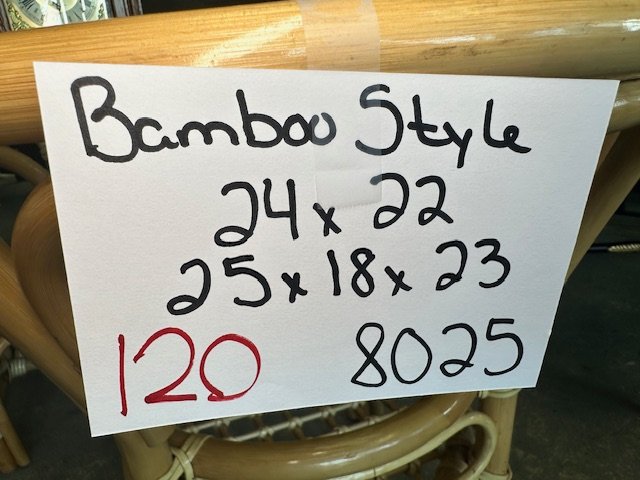 Bamboo Style
24 x 22
25 x 18 x 23
120 8025